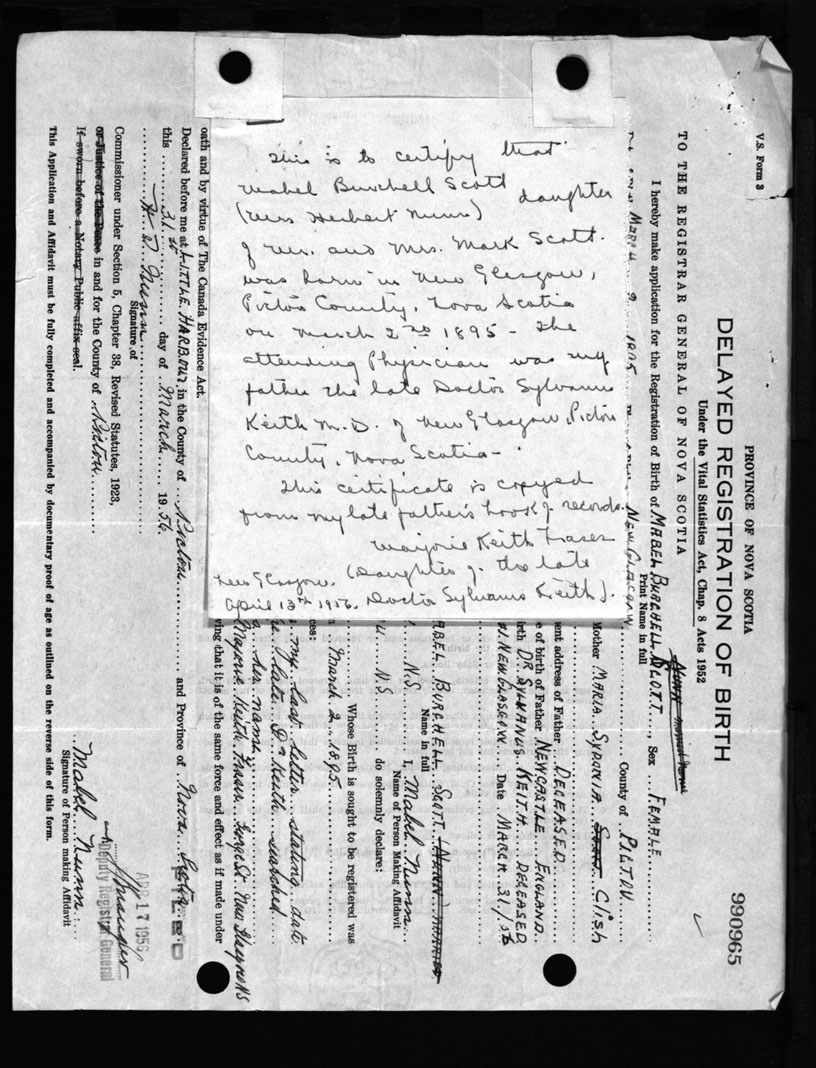 This is to certify that
Mabel Burchell Scott daughter
(Mrs Herbert Nunn)
of Mr. and Mrs. Mark Scott.
was born in New Glasgow,
Pictou County, Nova Scotia
on March 2nd 1895 - The
attending Physician was my
father the late Doctor Sylvanus
Keith M.D. of New Glasgow, Pictou
County, Nova Scotia -
This certificate is copyed
from my late father's book of records.
Marjorie Keith Fraser
(Daughter of the late
Doctor Sylvanus Keith).
New Glasgow.
April 13th 1956.
V.S. Form 3
PROVINCE OF NOVA SCOTIA
DELAYED REGISTRATION OF BIRTH
990965
Under the Vital Statistics Act, Chap. 8 Acts 1952
TO THE REGISTRAR GENERAL OF NOVA SCOTIA
I hereby make application for the Registration of Birth of MABEL BURCHELL SCOTT, Sex FEMALE
Print Name in full
MARCH 2 1895 NEW GLASGOW County of PICTOU
Mother MARIA SYDONIA Clish
ent address of Father DECEASED
e of birth of Father NEWCASTLE ENGLAND
irth DR SYLVANUS KEITH DECEASED
NEW GLASGOW Date MARCH 31/56
ABEL BURCHELL SCOTT
Name in full
I, Mabel Nunn
Name of Person Making Affidavit
N.S.
N.S do solemnly declare:
Whose Birth is sought to be registered was
March 2 1895
ces:
my last letter stating date
late Dr Keith searched
her name
Marjorie Keith Fraser New Glasgow NS
ving that it is of the same force and effect as if made under
oath and by virtue of The Canada Evidence Act.
Declared before me at LITTLE HARBOUR, in the County of Pictou and Province of Nova Scotia
this 31st day of March 1956.
Signature of
Commissioner under Section 5, Chapter 38, Revised Statutes, 1923,
or Justice of the Peace in and for the County of Pictou
If sworn before a Notary Public affix seal.
Mabel Nunn
Signature of Person making Affidavit
This Application and Affidavit must be fully completed and accompanied by documentary proof of age as outlined on the reverse side of this form.
APR 17 1956
Deputy Registrar General